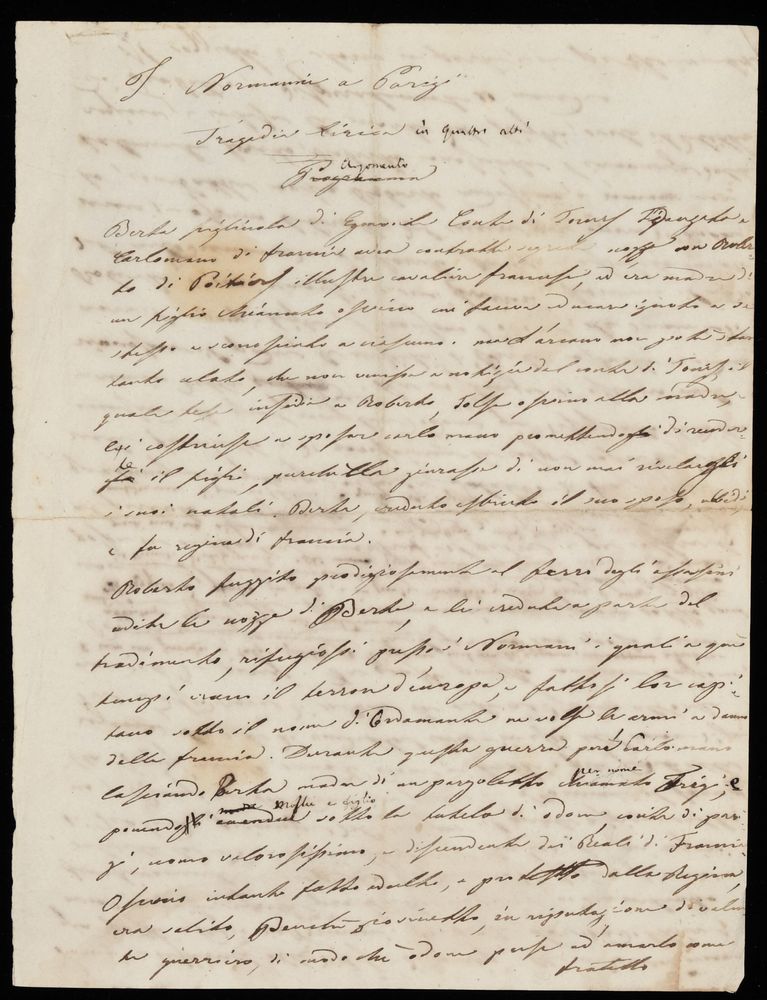 I Normanni a Parigi
Tragedia Lirica in quattro atti
Argomento
Programma
Berta figliuola di Conte di Tours fidanzata a
Carlomano di Francia avea contratte segrete nozze con Rober-
to di Poitiers illustre cavaliere francese, ed era madre di
un figlio chiamato Osvino cui faceva educare ignoto a se
stesso e sconosciuto a ciascuno. ma l'arcano non potè star
tanto celato, che non venisse a notizia del conte di Tours, il
quale tese insidie a Roberto, tolse Osvino alla madre, e
lei costrinse a sposar Carlo mano promettendogli di render-
le
il figlio, purch'ella giurasse di non mai rivelargli
i suoi natali. Berta, creduto estinto il suo sposo, ubbidì
e fu regina di Francia.
Roberto fuggito prodigiosamente al ferro degli assassini
udite le nozze di Berta, e lei creduta a parte del
tradimento, rifugiossi presso i Normanni i quali a que'
tempi erano il terror d'europa, e fattosi lor capi-
tano sotto il nome di Ordamante ne volse le armi a danno
della Francia. Durante questa guerra perì Carlo mano
per nome
lasciando Berta madre di un pargoletto chiamato Terigi, e
madre e figlio
ponendo sotto la tutela di Odone, conte di pari-
gi, uomo valorosissimo, e discendente dei Reali di Francia
Osvino intanto fatto adulto, e protetto dalla Regina,
era salito, benchè giovinetto, in riputazione di valen-
te guerriero, di modo che Odone prese ad amarlo come
fratello